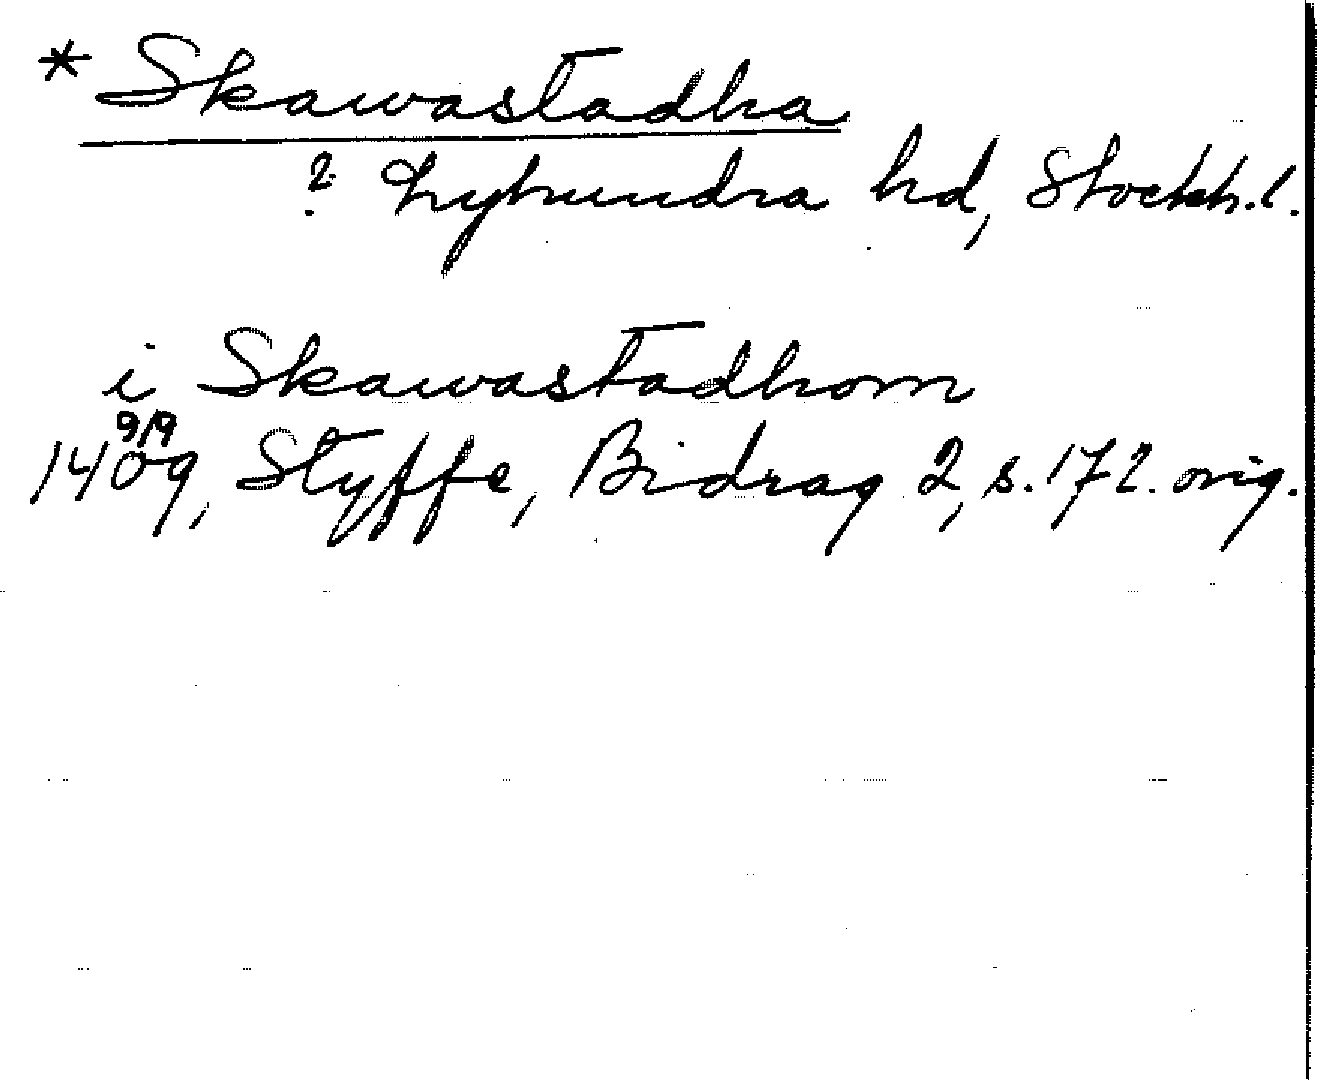 * Skawastadha
? Lyhundra hd, Stockh. l.
i Skawastadhom
1409 9/9, Styffe, Bidrag 2, s. 172. orig.